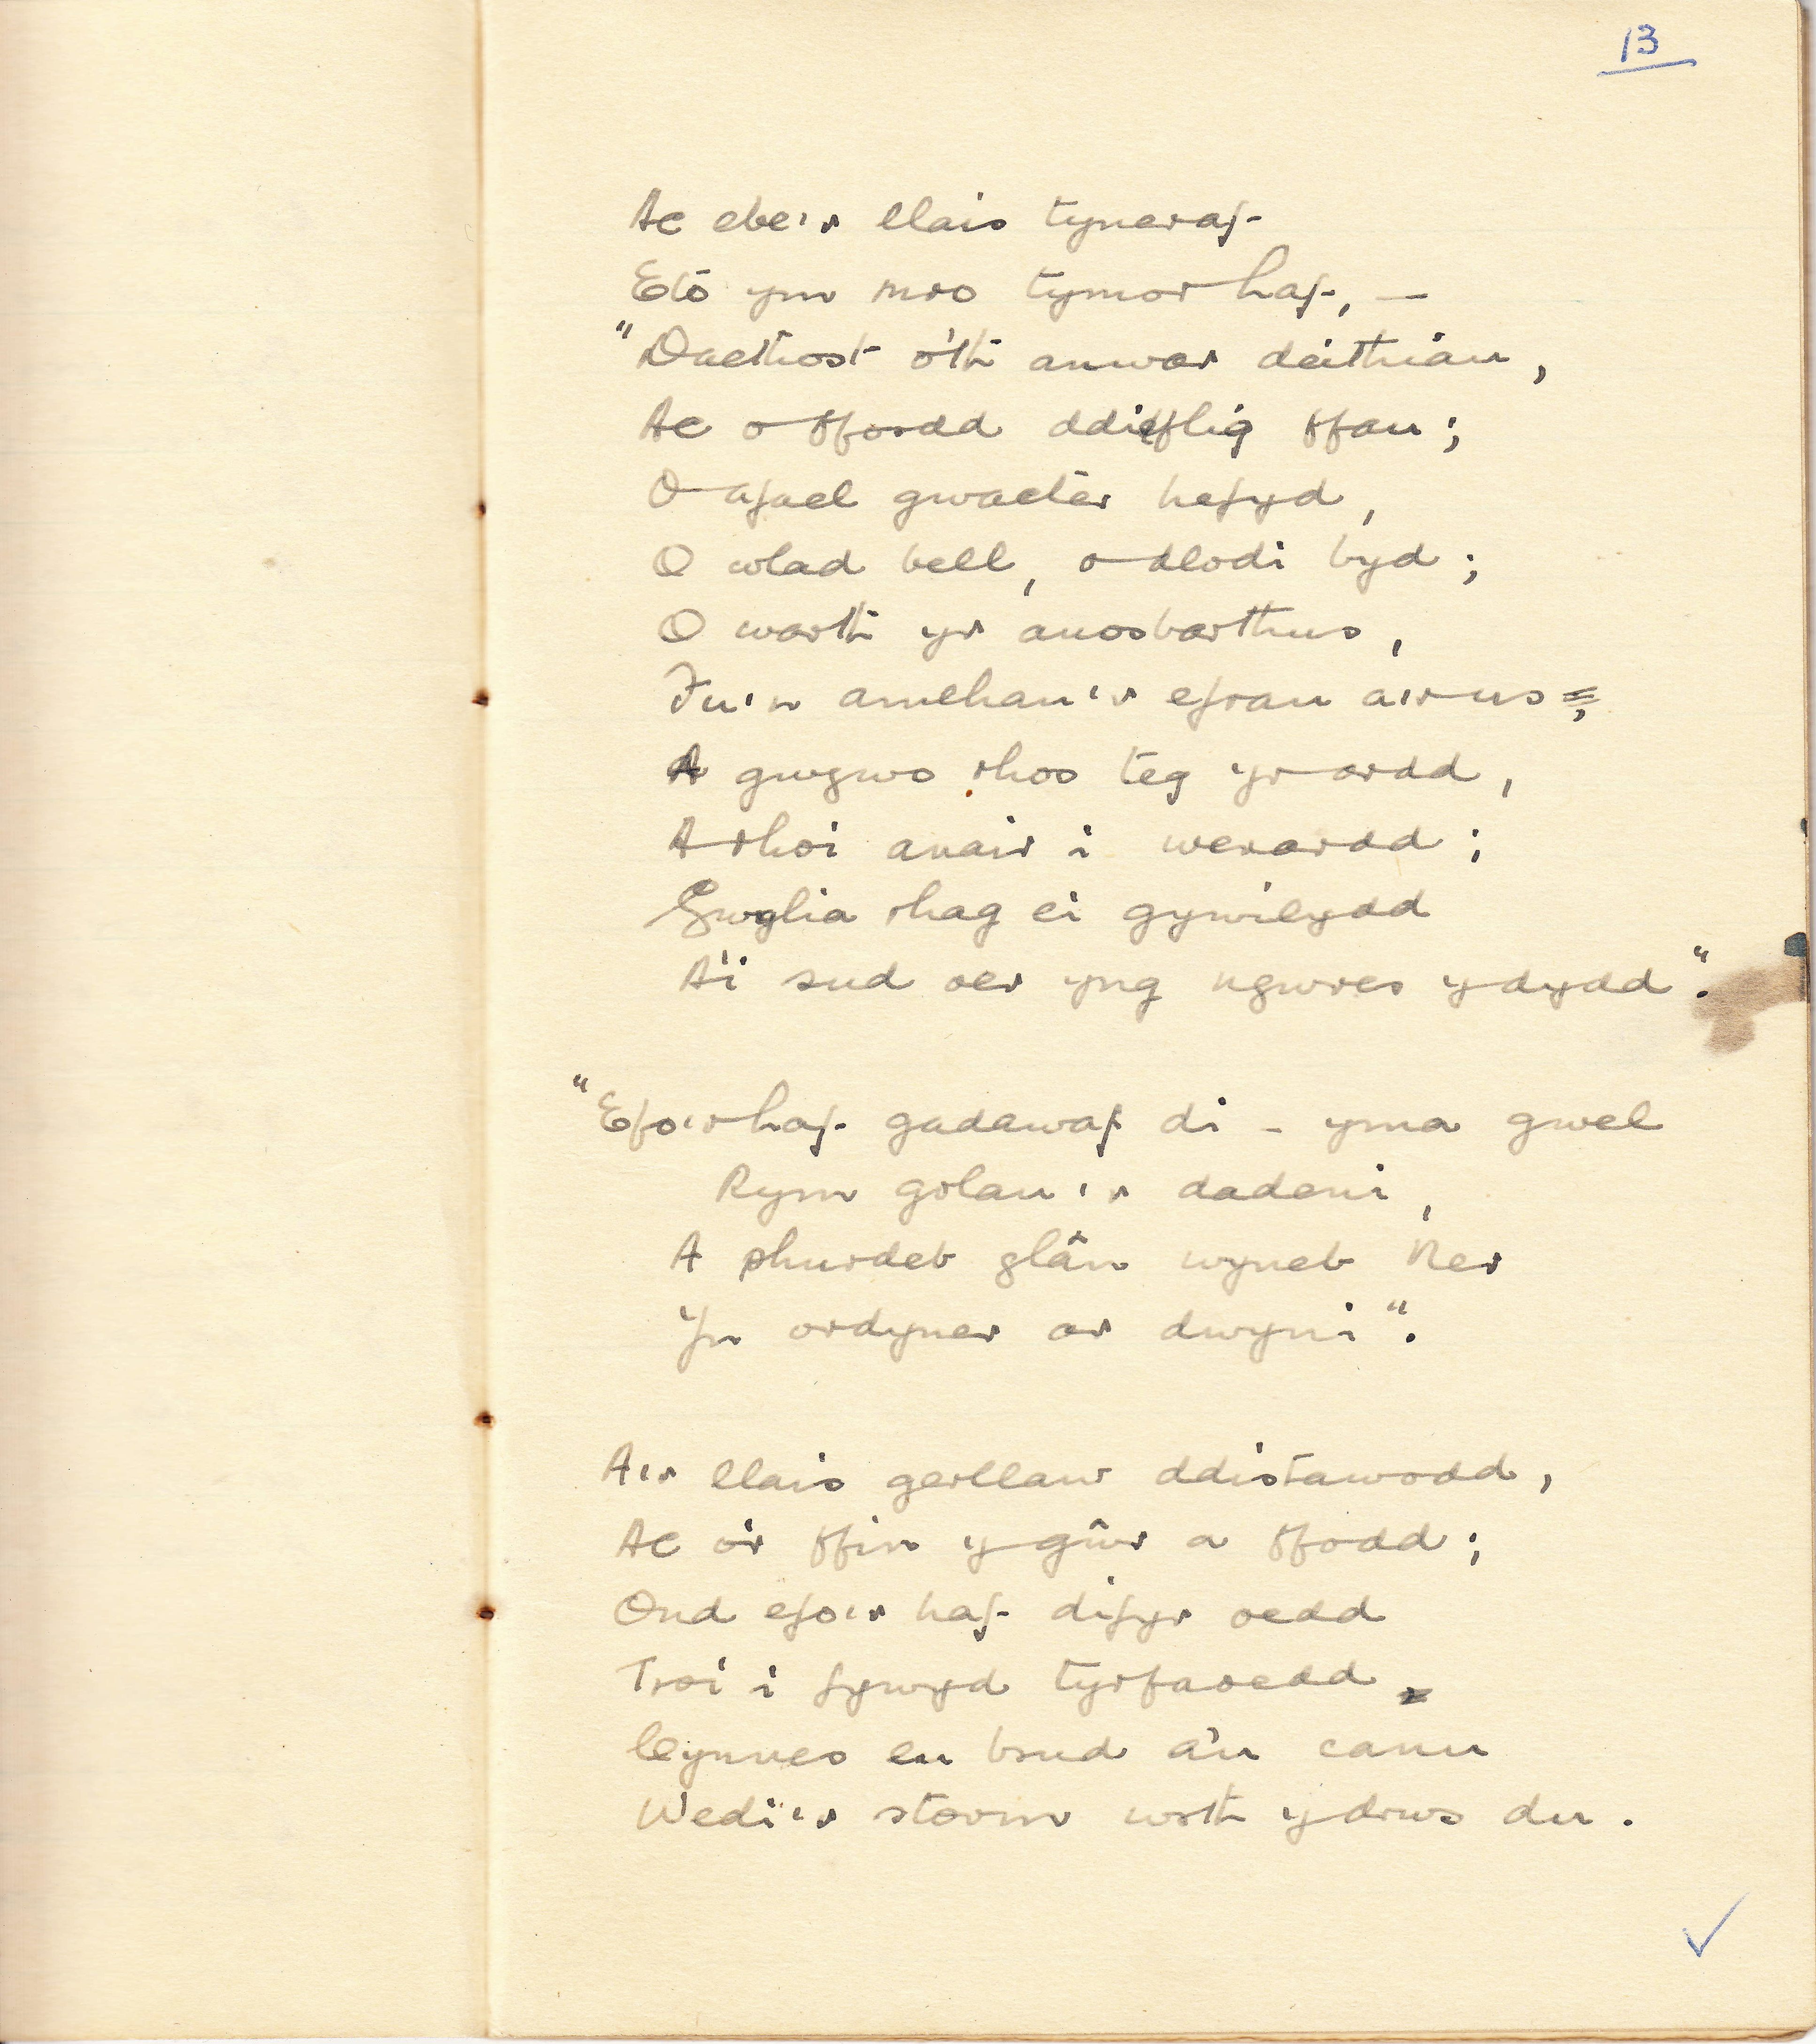 13
Ac ebe'r llais tyneraf
Eto ym mro tymor haf, —
"Daethost o'th anwar deithiau,
Ac o ffordd ddieflig ffau;
O afael gwacter hefyd,
O wlad bell, o dlodi byd;
O warth yr anosbarthus,
Fu'n amehau'r efrau a'r us;
A gwgws rhos teg yr ardd,
A rhoi anair i wenardd;
Gwylia rhag ei gywilydd
A'i sud oer yng ngwres y dydd".
"Efo'r haf gadawaf di - yma gwel
Rym golau'r dadeni,
A phurdeb glân wyneb Ner
Yn ordyner ar dwyni".
A'r llais gerllaw ddistawodd,
Ac o'r ffin y gŵr a ffodd;
Ond efo'r haf difyr oedd
Troi i fywyd tyrfaoedd
Cynnes eu brud a'u canu
Wedi'r storm wrth y drws du.